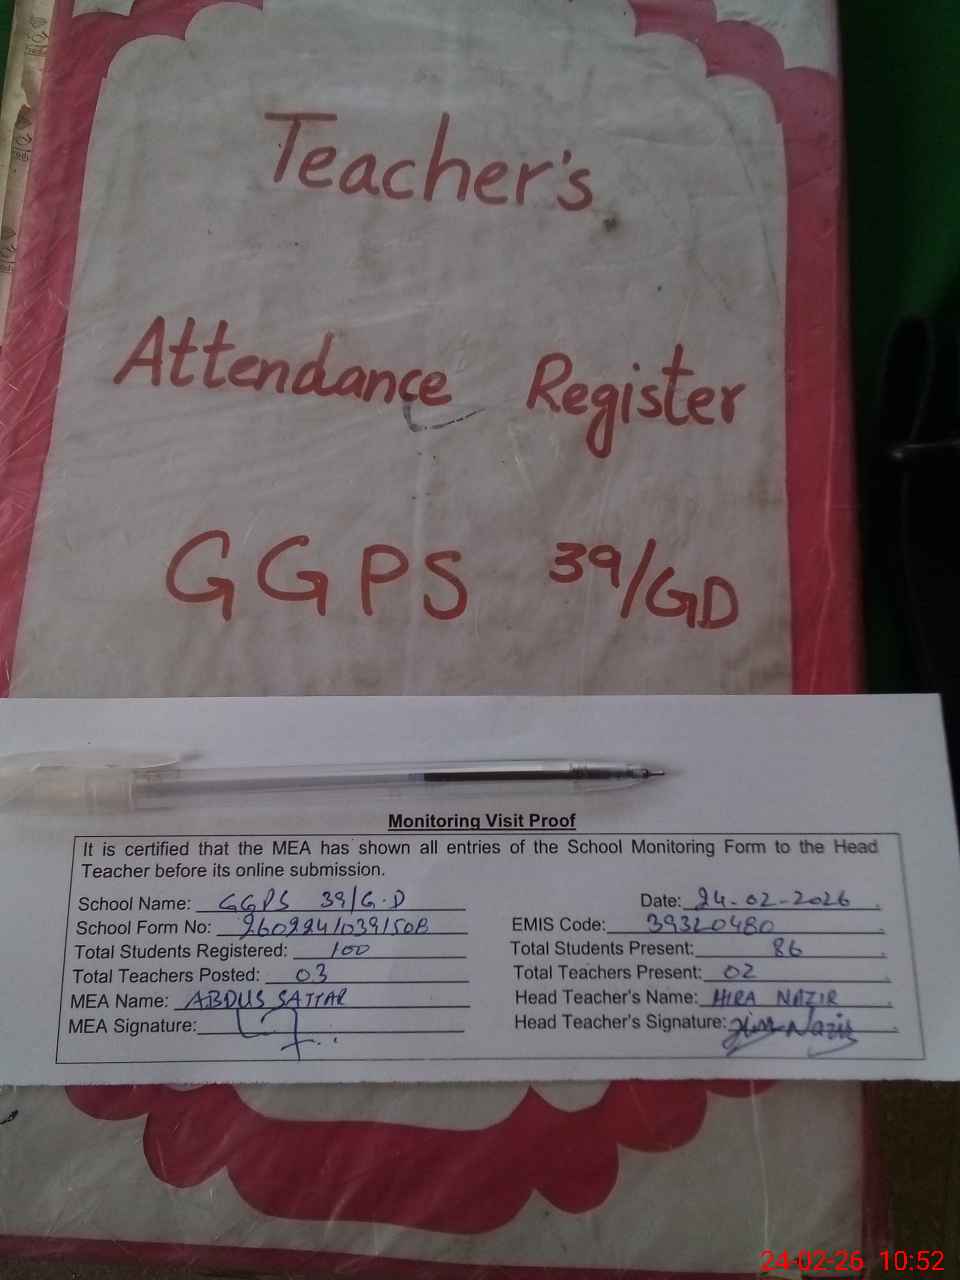 Teacher's
Attendance Register
GGPS 39/GD
Monitoring Visit Proof
It is certified that the MEA has shown all entries of the School Monitoring Form to the Head
Teacher before its online submission.
School Name: GGPS 39/G.D Date: 24-02-2026
School Form No: EMIS Code: 39320480
Total Students Registered: 100 Total Students Present: 86
Total Teachers Posted: 03 Total Teachers Present: 02
MEA Name: ABDUS SATTAR Head Teacher's Name: HIRA NAZIR
MEA Signature: Head Teacher's Signature: Hira Nazir
24-02-26 10:52